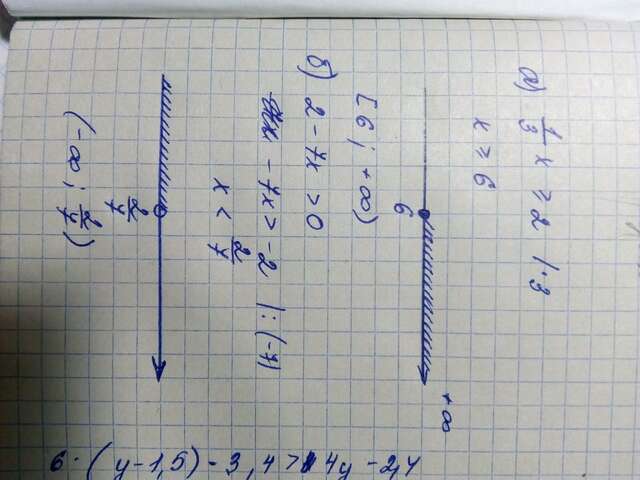 а) 1/3 x ≥ 2 | · 3
x ≥ 6
6 +∞
[6; +∞)
б) 2 - 7x > 0
- 7x > -2 | : (-7)
x < 2/7
2/7
(-∞; 2/7)
6 · (y - 1,5) - 3,4 > 4y - 2,4